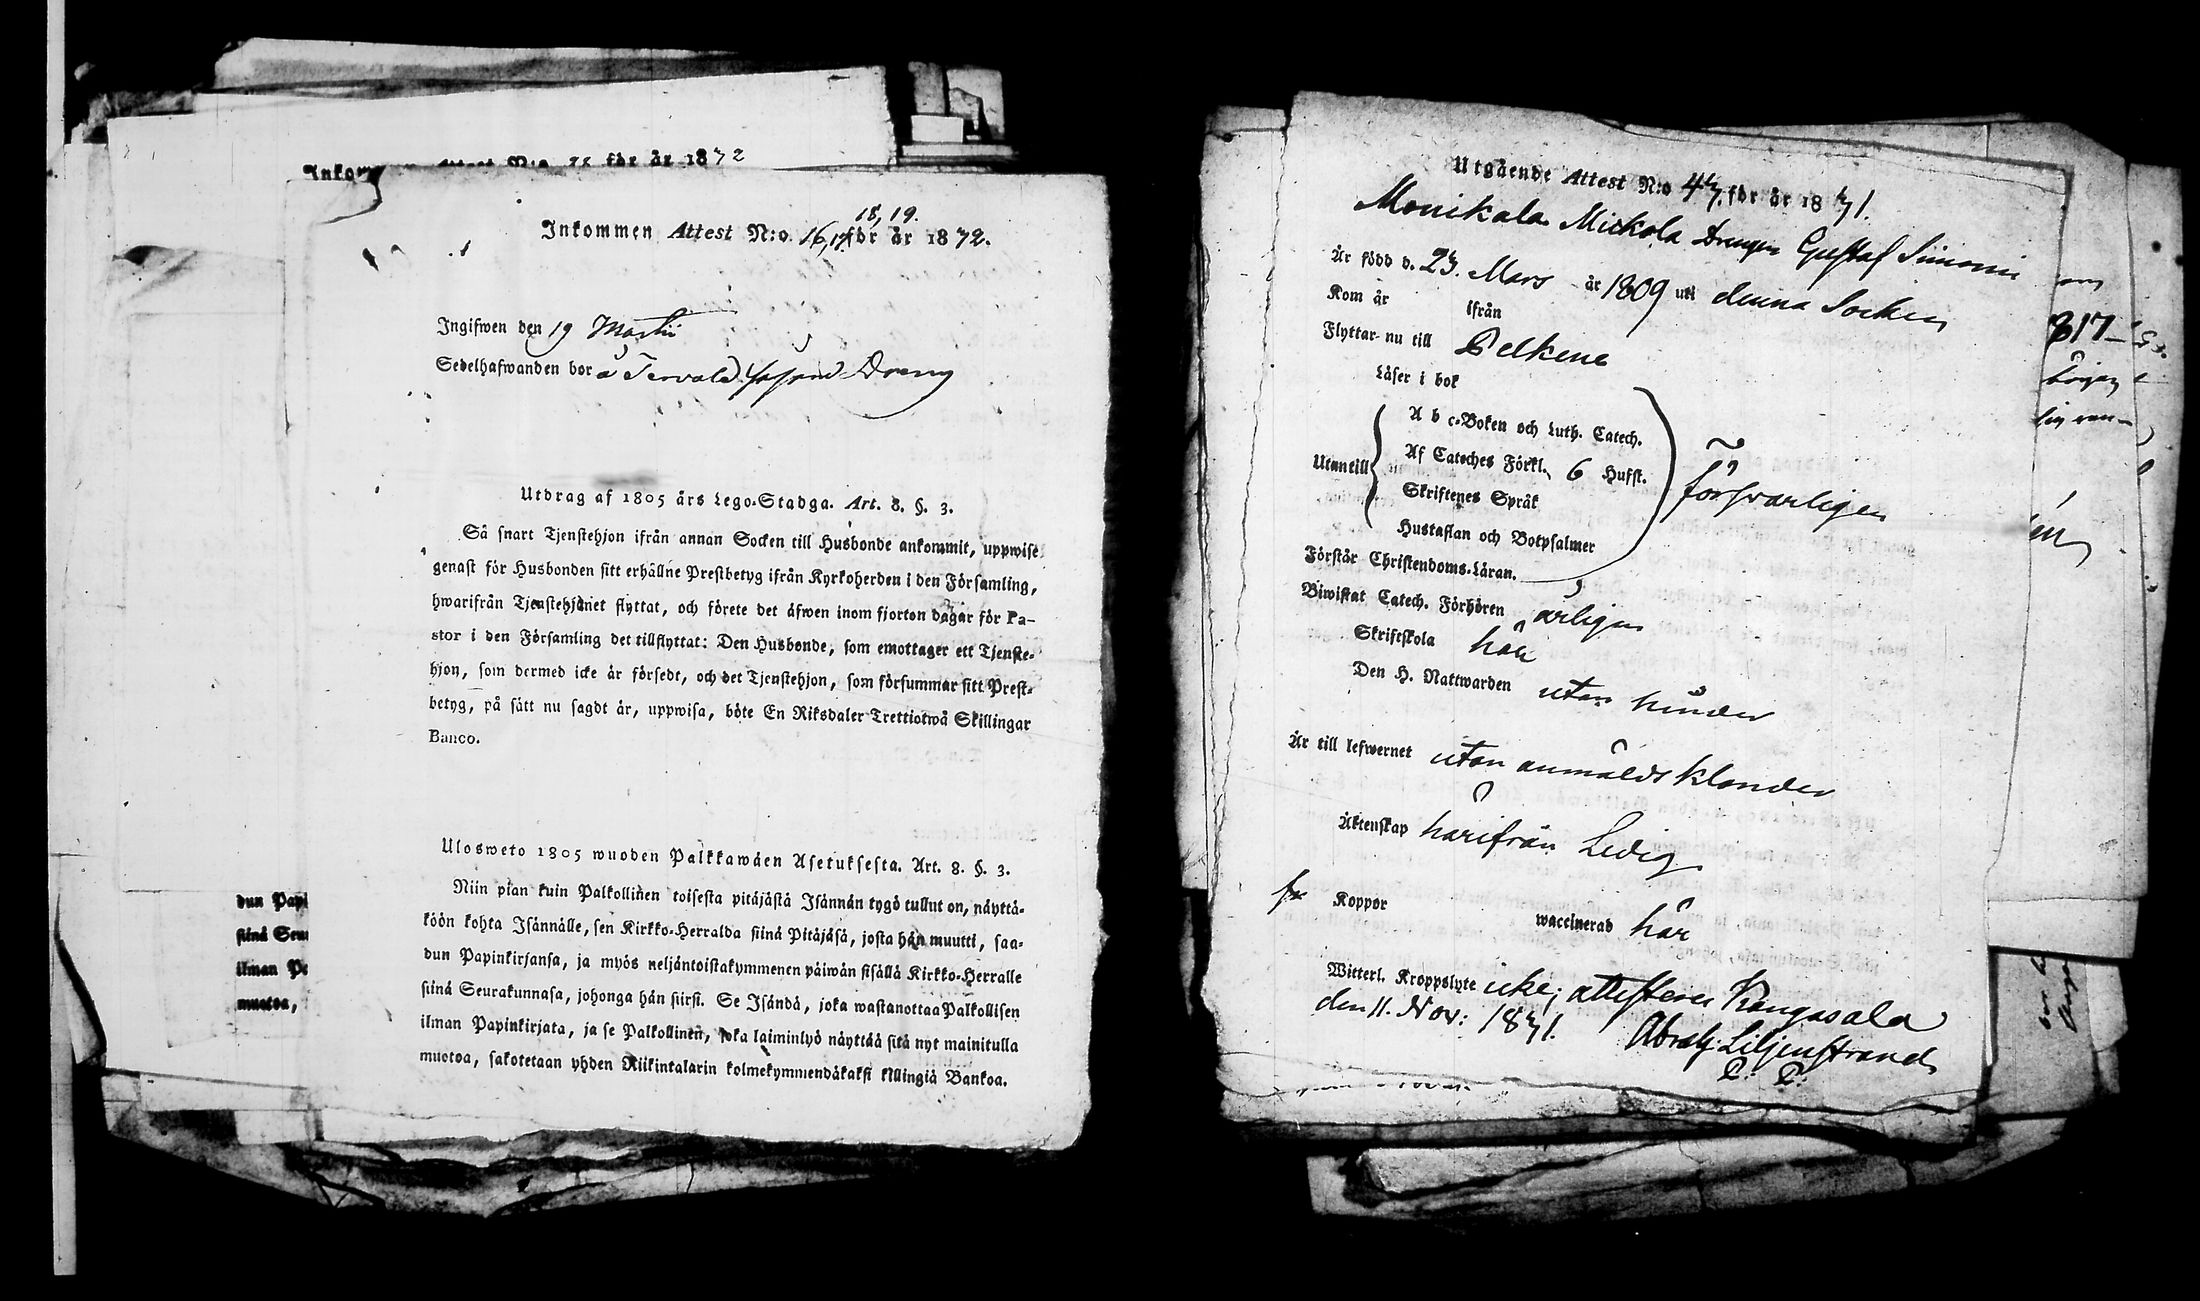 Inkommen Attest N:o 16, 17, 18, 19. för år 1872.
Ingifwen den 19 Martii
Sedelhafwanden bor å
Utdrag af 1805 års Lego-Stadga. Art. 8. §. 3.
Så snart Tjenstehjon ifrån annan Socken till Husbonde ankommit, uppwise
genast för Husbonden sitt erhållne Prestbetyg ifrån Kyrkoherden i den Församling,
hwarifrån Tjenstehjonet flyttat, och förete det äfwen inom fjorton dagar för Pa-
stor i den Församling det tillflyttat: Den Husbonde, som emottager ett Tjenste-
hjon, som dermed icke är försedt, och det Tjenstehjon, som försummar sitt Prest-
betyg, på sätt nu sagdt är, uppwisa, böte En Riksdaler Trettiotwå Skillingar
Banco.
Ulosweto 1805 wuoden Palkkawäen Asetuksesta. Art. 8. §. 3.
Niin pian kuin Palkollinen toisesta pitäjästä Isännän tygö tullut on, näyttä-
köön kohta Isännälle, sen Kirkko-Herralda siinä Pitäjäsä, josta hän muutti, saa-
dun Papinkirjansa, ja myös neljäntoistakymmenen päiwän sisällä Kirkko-Herralle
siinä Seurakunnasa, johonga hän siirsi. Se Isändä, joka wastanottaa Palkollisen
ilman Papinkirjata, ja se Palkollinen, joka laiminlyö näyttää sitä nyt mainitulla
muotoa, sakotetaan yhden Riikintalarin kolmekymmendäkaksi killingiä Bankoa.
dun Papi
siinä Seu
ilman Pa
muotoa,
Utgående Attest N:o 47. för år 1871.
Monikala Mickola Drengen Gustaf Simonsn
Är född d. 23. Mars år 1809 uti denna Socken
Kom år ifrån
Flyttar nu till Pelkene
Läser i bok
Utantill
A b c-Boken och Luth. Catech.
Af Cateches Förkl. 6 Hufst.
Skriftenes Språk
Hustaflan och Botpsalmer
försvarligen
Förstår Christendoms-Läran.
Biwistat Catech. Förhören årligen
Skriftskola har
Den H. Nattwarden utan hinder
Är till lefwernet utan anmäldt klander
Äktenskap härifrån Ledig
Koppor waccinerad har
Witterl. Kroppslyte icke; attesterar Kangasala
den 11. Nov: 1871. Abrah: Liljenstrand
P: P:
817